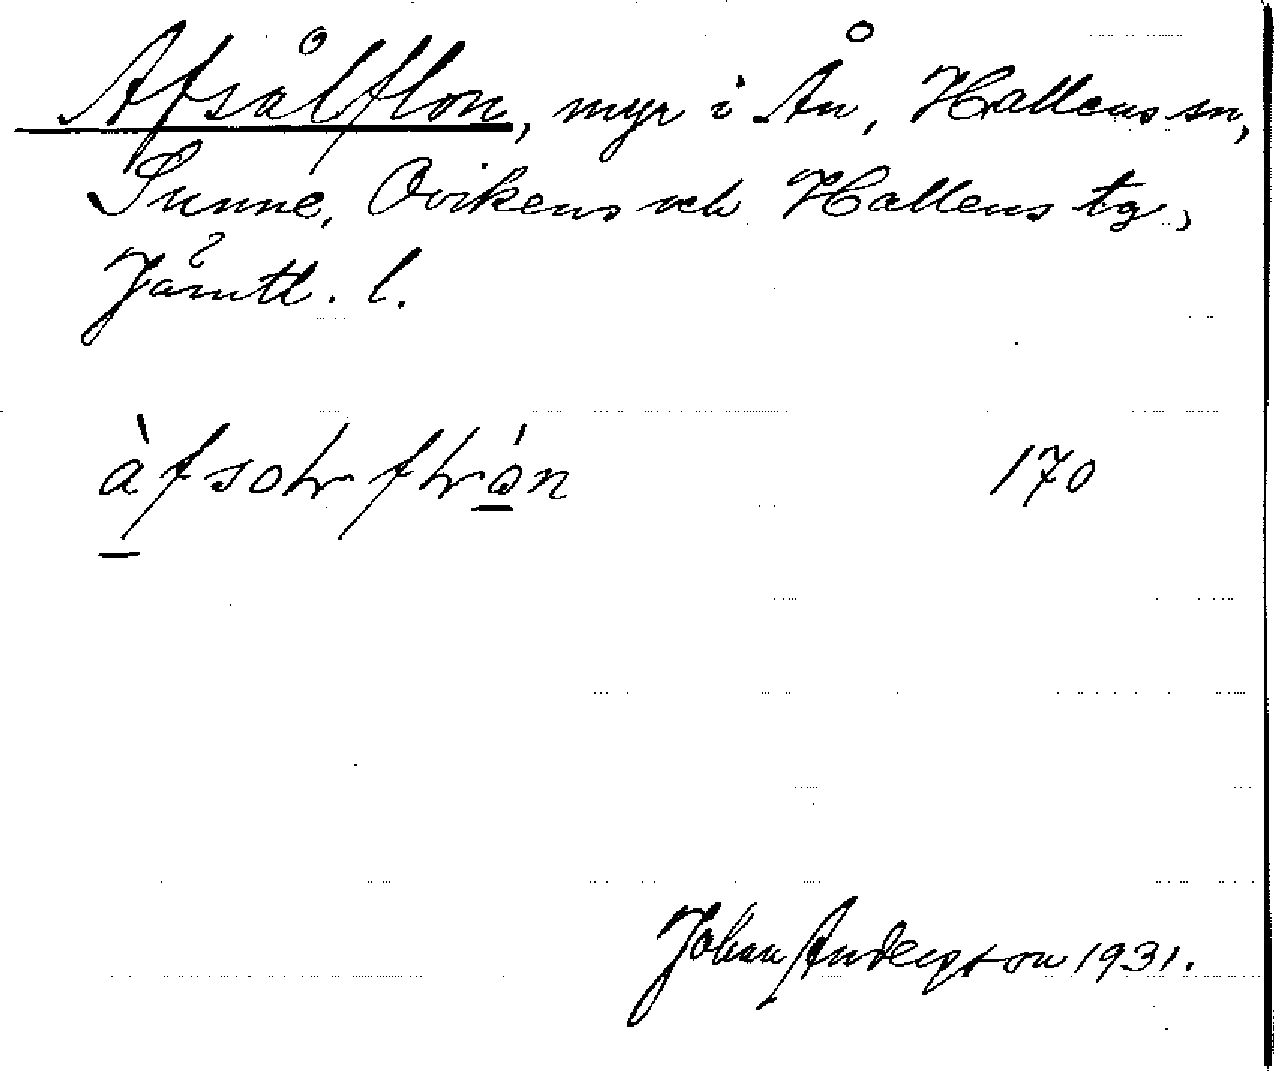 Afsålflon, myr i Ån, Hallens sn,
Sunne, Ovikens och Hallens tg.,
Jämtl. l.
170
Johan Andersson 1931.